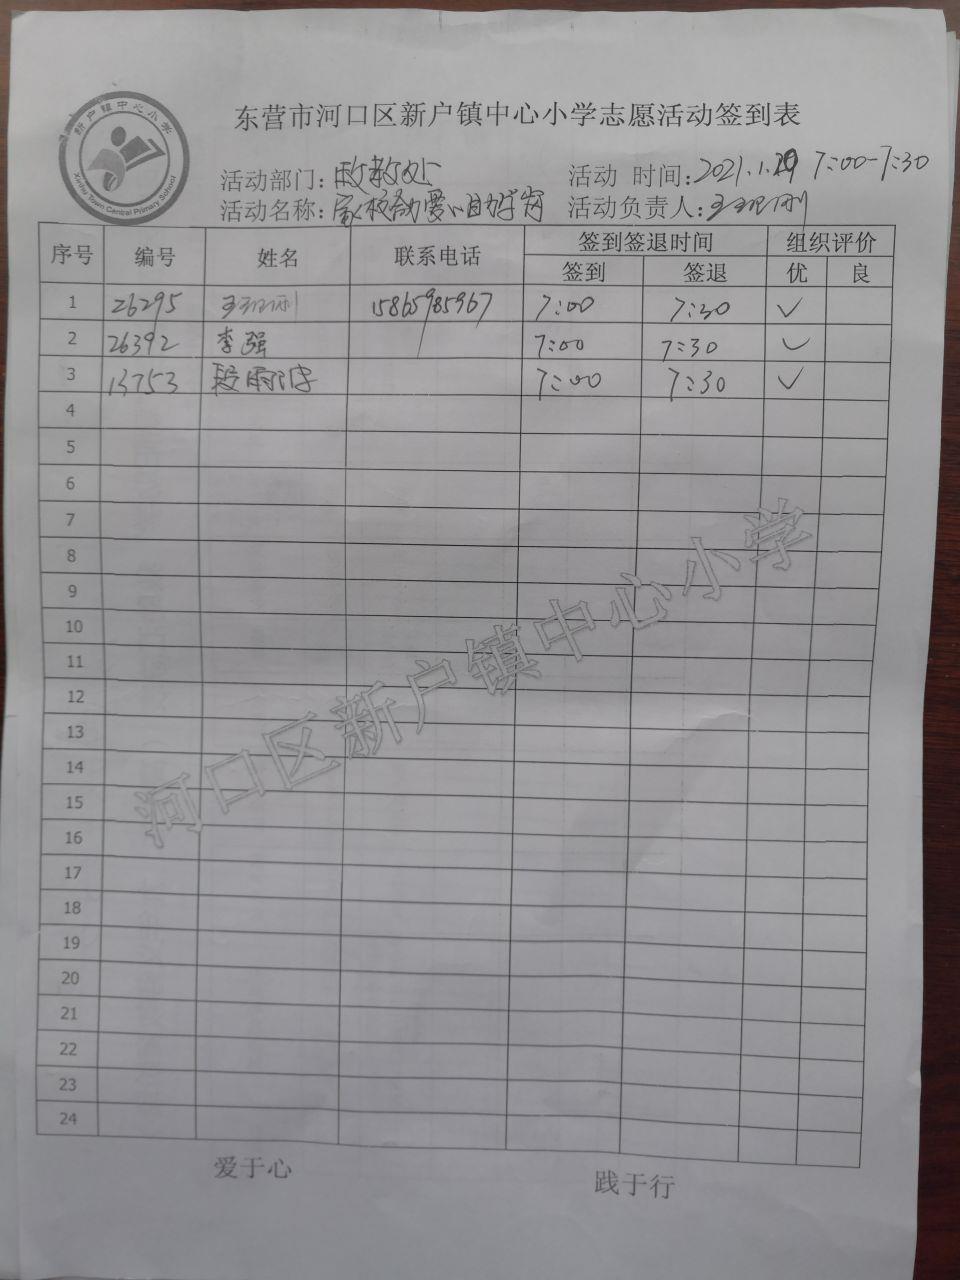 新户镇中心小学
Xinhu Town Central Primary School
东营市河口区新户镇中心小学志愿活动签到表
活动部门：政教处 活动 时间：2021.1.29 7:00-7:30
活动名称：家校劳动爱心助学岗 活动负责人：王卫刚
序号 编号 姓名 联系电话 签到签退时间 组织评价
签到 签退 优 良
1 26295 15865985967 7:00 7:30 ✓
2 26392 李强 7:00 7:30 ✓
3 13753 段雨 7:00 7:30 ✓
4
5
6
7
8
9
10
11
12
13
14
15
16
17
18
19
20
21
22
23
24
河口区新户镇中心小学
爱于心 践于行